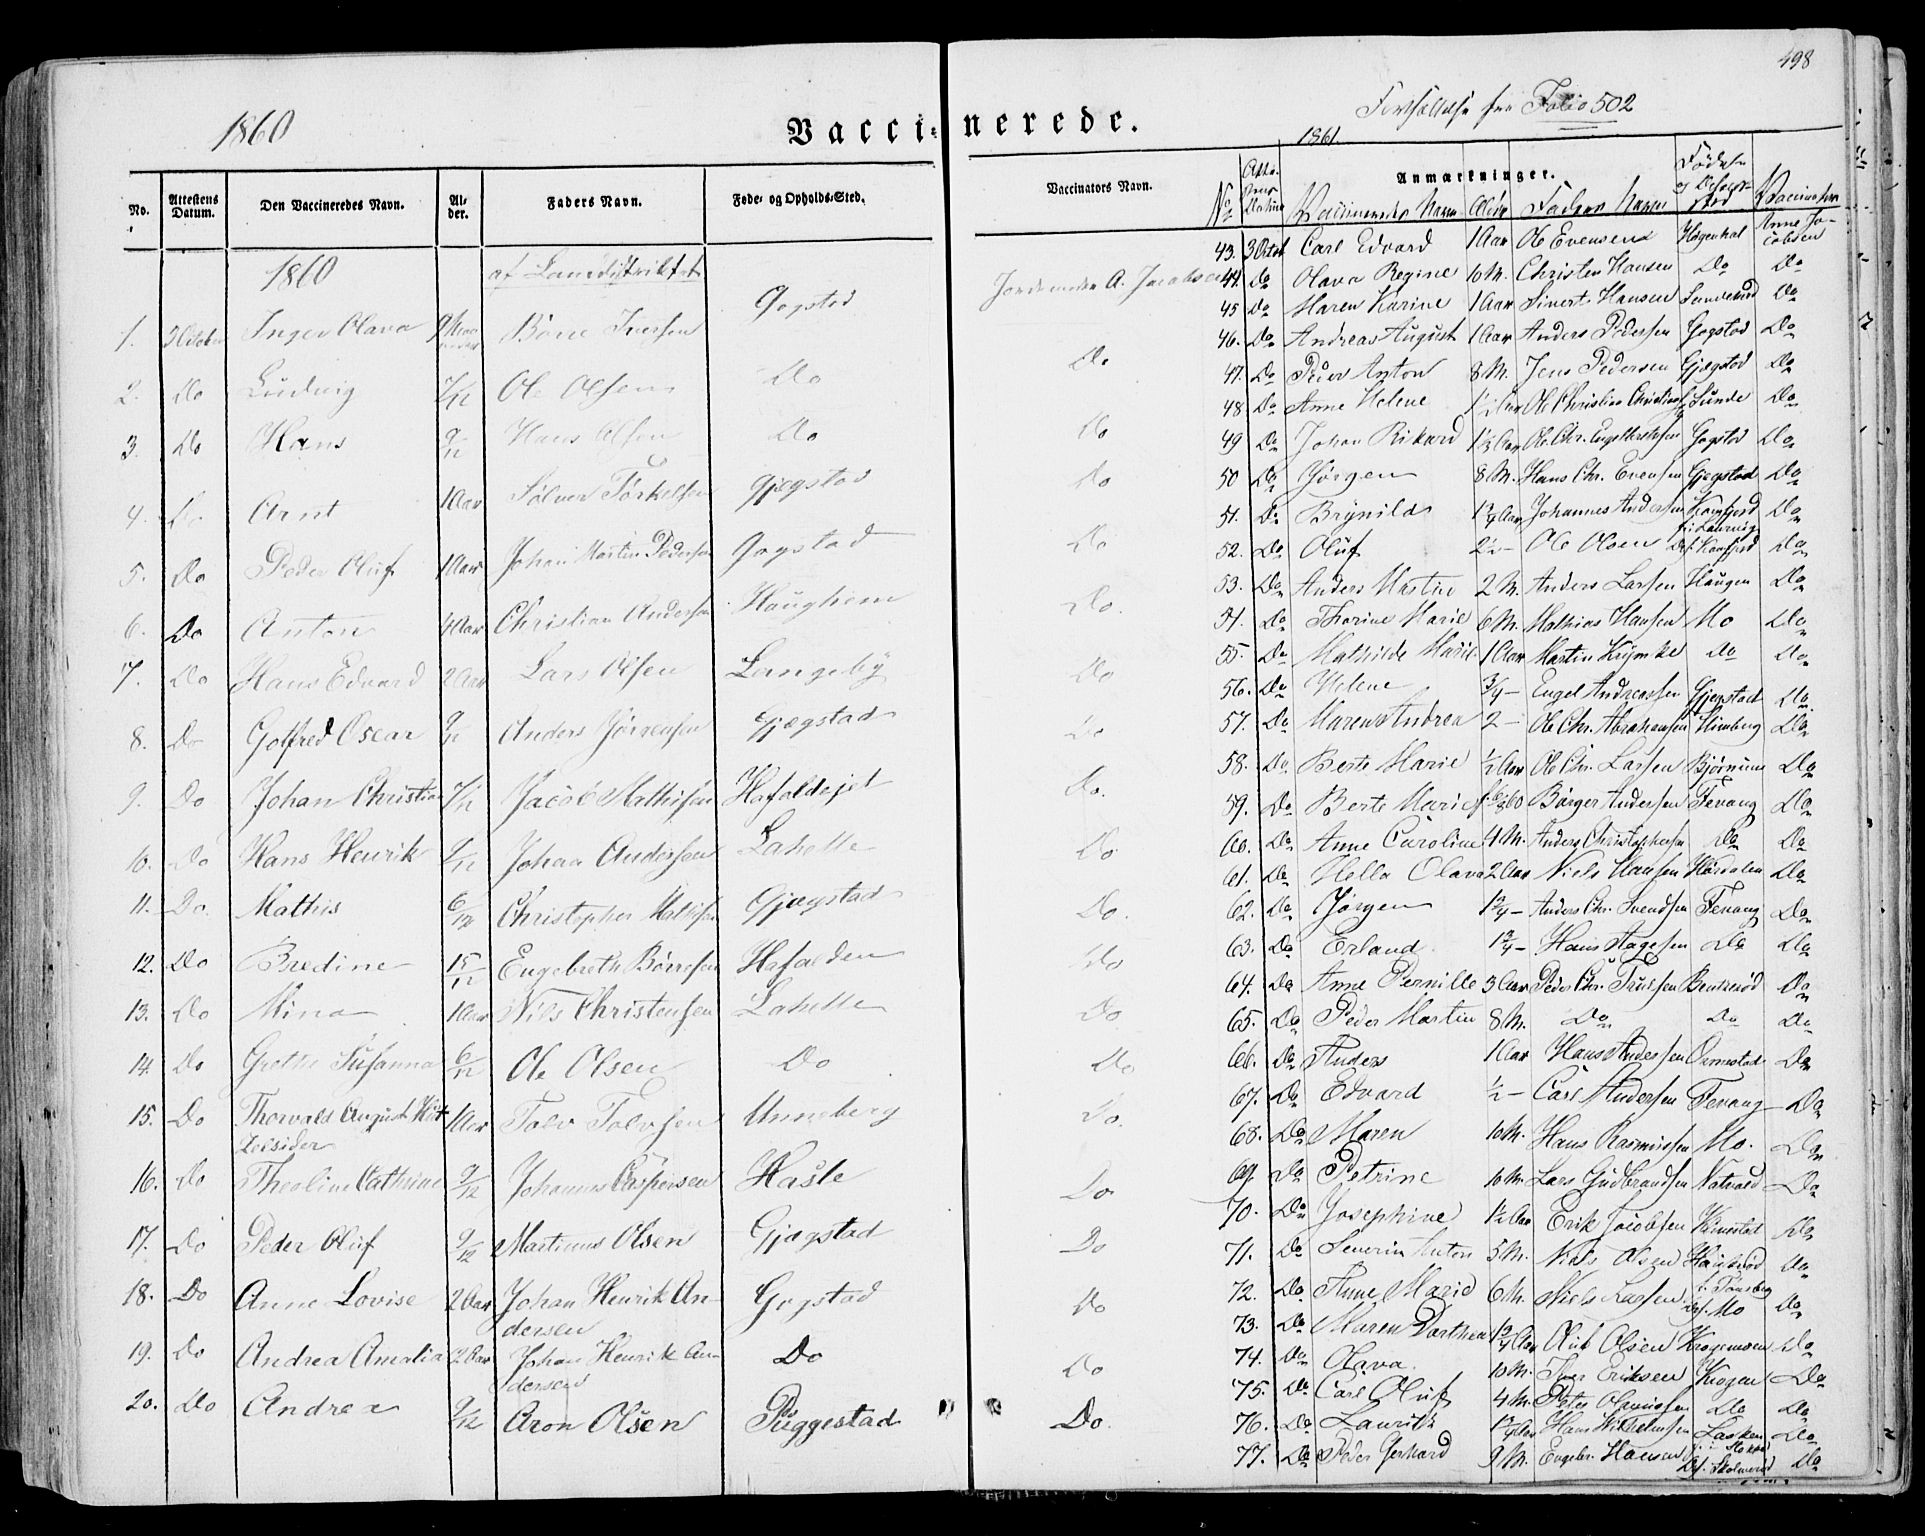 498
1860
Vaccinerede.
Fortsættelse fra Folio 502
1861.
No. Attestens Datum. Den Vaccineredes Navn. Alder. Faders Navn. Føde- og Opholds-Sted.
Vaccinators Navn. Anmærkninger.
1860 af Landdistriktet
1. 3 October Inger Olava 9 Børre Iversen Gogstad Jordemoder A. Jacobsen
2. Do Ludvig 7/12 Ole Olsen Do Do
3. Do Hans 9/12 Hans Olsen Do Do
4. Do Arnt 1 Aar Sølver Torkelsen Gjegstad Do
5. Do Peder Oluf 1 Aar Johan Martin Pedersen Gogstad Do
6. Do Anton 4 Aar Christian Andersen Haughem Do.
7. Do Hans Edvard 2 Aar Lars Olsen Langeby Do
8. Do Gotfred Oscar 9/12 Anders Jørgensen Gjegstad Do
9. Do Johan Christian 7/12 Jacob Mathisen Do.
10. Do Hans Henrik 9/12 Johan Andersen Lahelle Do
11. Do. Mathis 6/12 Christopher Mathisen Gjægstad Do.
12. Do Bredine 15/12 Engebreth Børresen Hafalden Do
13. Do Mina 1 Aar Nils Christensen Lahelle Do
14. Do Grethe Susanna 6/12 Ole Olsen Do Do
15. Do Thorvald August 1 Aar Tolv Tolvsen Unneberg Do.
16. Do Theoline Cathrine 9/12 Johannes Caspersen Hasle Do
17. Do Peder Oluf 9/12 Martinus Olsen Gjøgstad Do
18. Do Anne Lovise 2 Aar Johan Henrik An-
dersen Gogstad Do
19. Do Andrea Amalia 2 Aar Johan Henrik An-
dersen Do Do
20. Do Andrea 9/12 Aron Olsen Puggestad Do.
No Vaccineredes Navn Alder Faders Navn
43. 3 Octob Carl Edvard 1 Aar Ole Evensen Høgenhal Anne Ja-
cobsen
44. Do Olava Regine 10 M. Christen Hansen Do Do
45 Do Maren Karine 1 Aar Sivert Hansen Do
46. Do Andreas August 1 Aar Anders Pedersen Gogstad Do
47. Do Peder Anton 8 M. Jens Pedersen Gjegstad Do
48 Do Anne Helene 1½ Aar Ole Christian Sunde Do
49 Do Johan Rikard Ole Chr. Engebrethsen Gogstad Do
50 Do Jørgen 8 M. Hans Chr. Evensen Gjegstad Do
51. Do Brynild 1¾ Aar Johannes Andersen Do
52. Do Oluf 2½ – Ole Olsen Do
53. Do Anders Martin 2 M. Anders Larsen Haugen Do
54. Do Thorine Marie 6 M. Mathias Hansen Mo Do
55. Do Mathilde Marie 1 Aar Martin Do Do
56. Do Helene ¾ – Engel Andreassen Gjegstad Do
57. Do Maren Andrea 2 – Ole Chr. Abrahamsen Himberg Do
58. Do Berte Marie ½ Aar Ole Chr. Larsen Bjørnum Do
59. Do Berte Marie Børger Andersen Fevang Do
60. Do Anne Caroline 4 M. Anders Christophersen Do Do
61. Do Hella Olava 2 Aar Niels Hansen Do
62. Do Jørgen 1¾ – Anders Chr. Svendsen Fevang Do
63. Do Erland 1¾ – Hans Aagesen Do Do
64. Do Anne Pernille 3 Aar Peder Chr. Trulsen Bentserød Do
65. Do Peder Martin 8 M. Do Do Do
66. Do Anders 1 Aar Hans Andersen Ormestad Do
67. Do Edvard ½ – Carl Andersen Fevang Do
68. Do Maren 10 M. Hans Rasmussen Mo. Do
69. Do Petrine 10 M. Lars Gudbrandsen Do
70. Do Josephine 1½ Aar Erik Jacobsen Do
71. Do Severin Anton 5 M. Niels Olsen Do
72. Do Anne Marie 6 M. Niels Larsen Mo Do
73. Do Maren Dorthea 1¾ Aar Oluf Olsen Krogemoen Do
74. Do Olava. 10 M. Iver Eriksen Krogen Do
75. Do Carl Oluf 4 M. Peter Do Do
76. Do Laurits Hans Do
77. Do Peder Gerhard 9 M. Engebr. Hansen Do